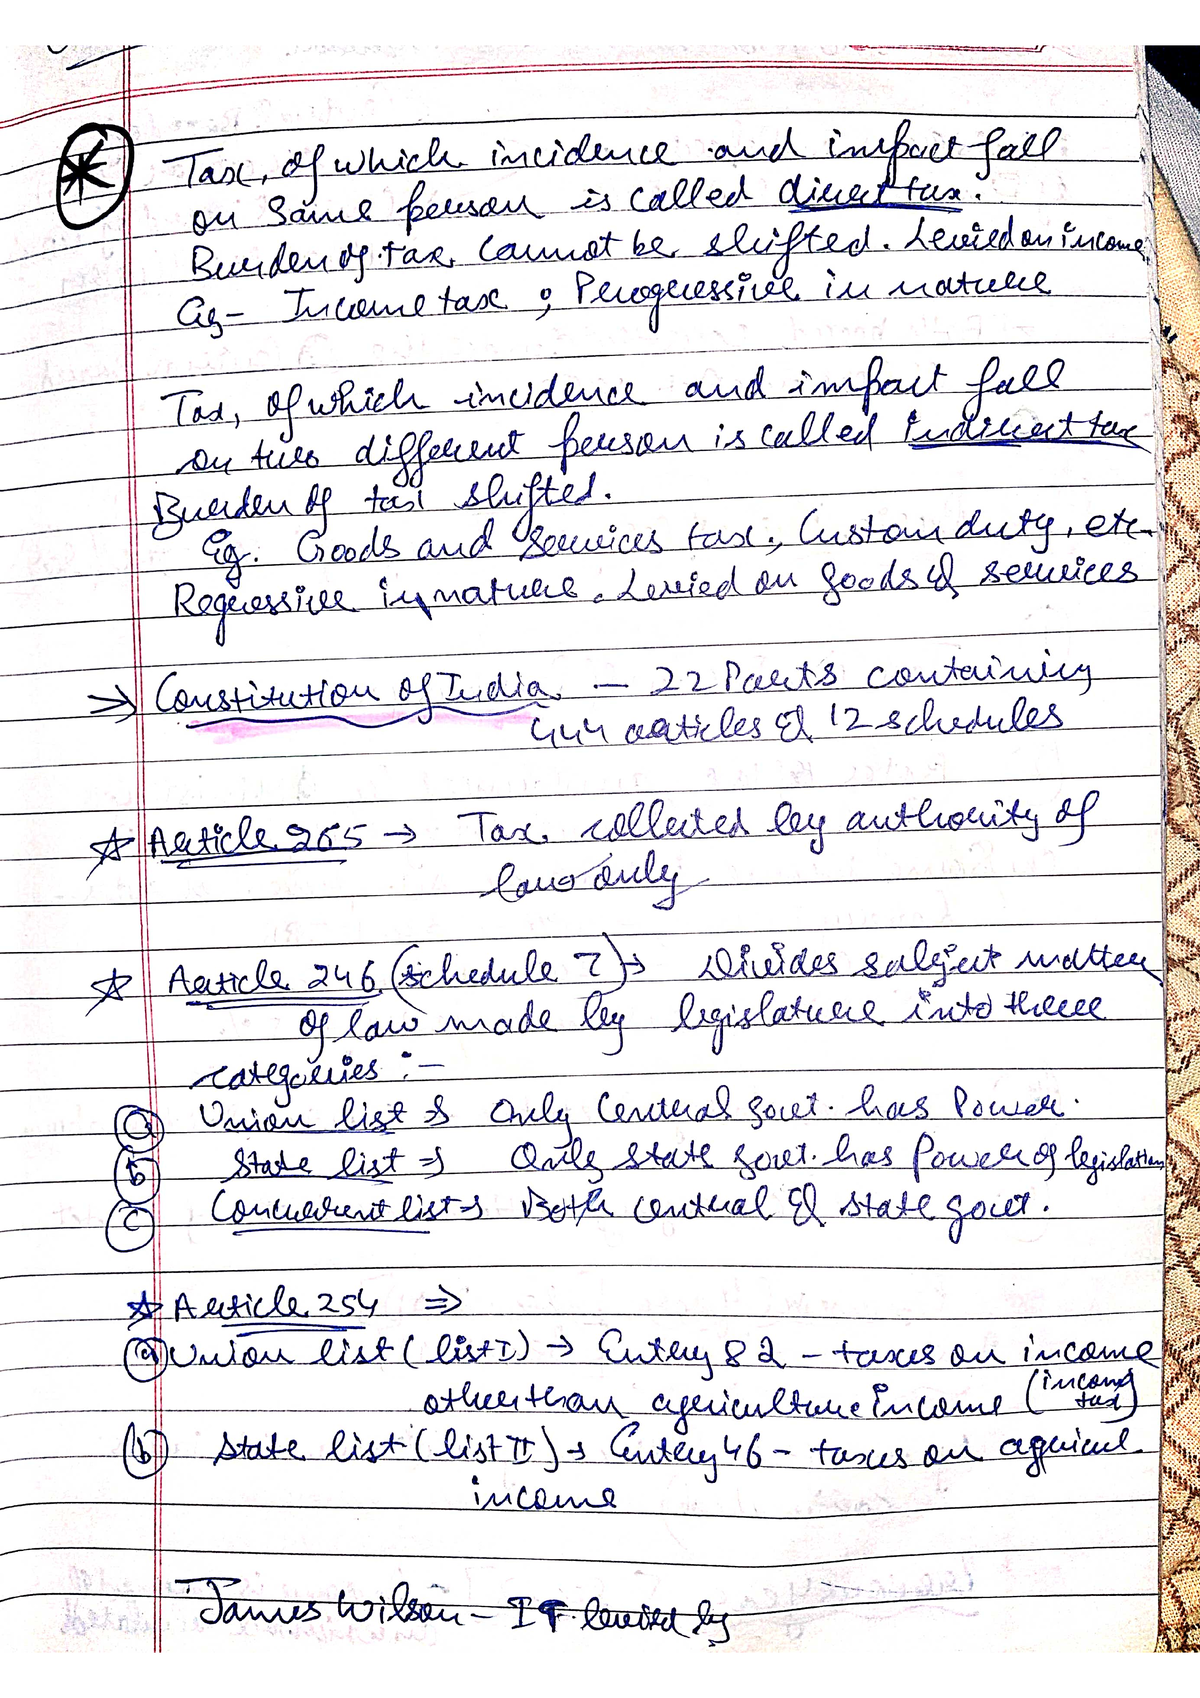 Tax, of which incidence and impact fall
on same person is called direct tax.
Burden of tax cannot be shifted. Levied on income
Eg- Income tax ; Progressive in nature
Tax, of which incidence and impact fall
on two different person is called indirect tax
Burden of tax shifted.
Eg. Goods and Services tax, Custom duty, etc.
Regressive in nature. Levied on goods & services
⇒ Constitution of India - 22 Parts containing
444 articles & 12 schedules
☆ Article 265 → Tax collected by authority of
law only
☆ Article 246 (schedule 7) → Divides subject matter
of law made by legislature into three
categories :-
(a) Union list → Only Central govt. has Power.
(b) State list → Only state govt. has Power of legislation
(c) Concurrent list → Both central & state govt.
☆ Article 254 ⇒
(a) Union list (list I) → Entry 82 - taxes on income
other than agriculture income (income tax)
(b) State list (list II) → Entry 46 - taxes on agricul.
income
James Wilson - IT levied by